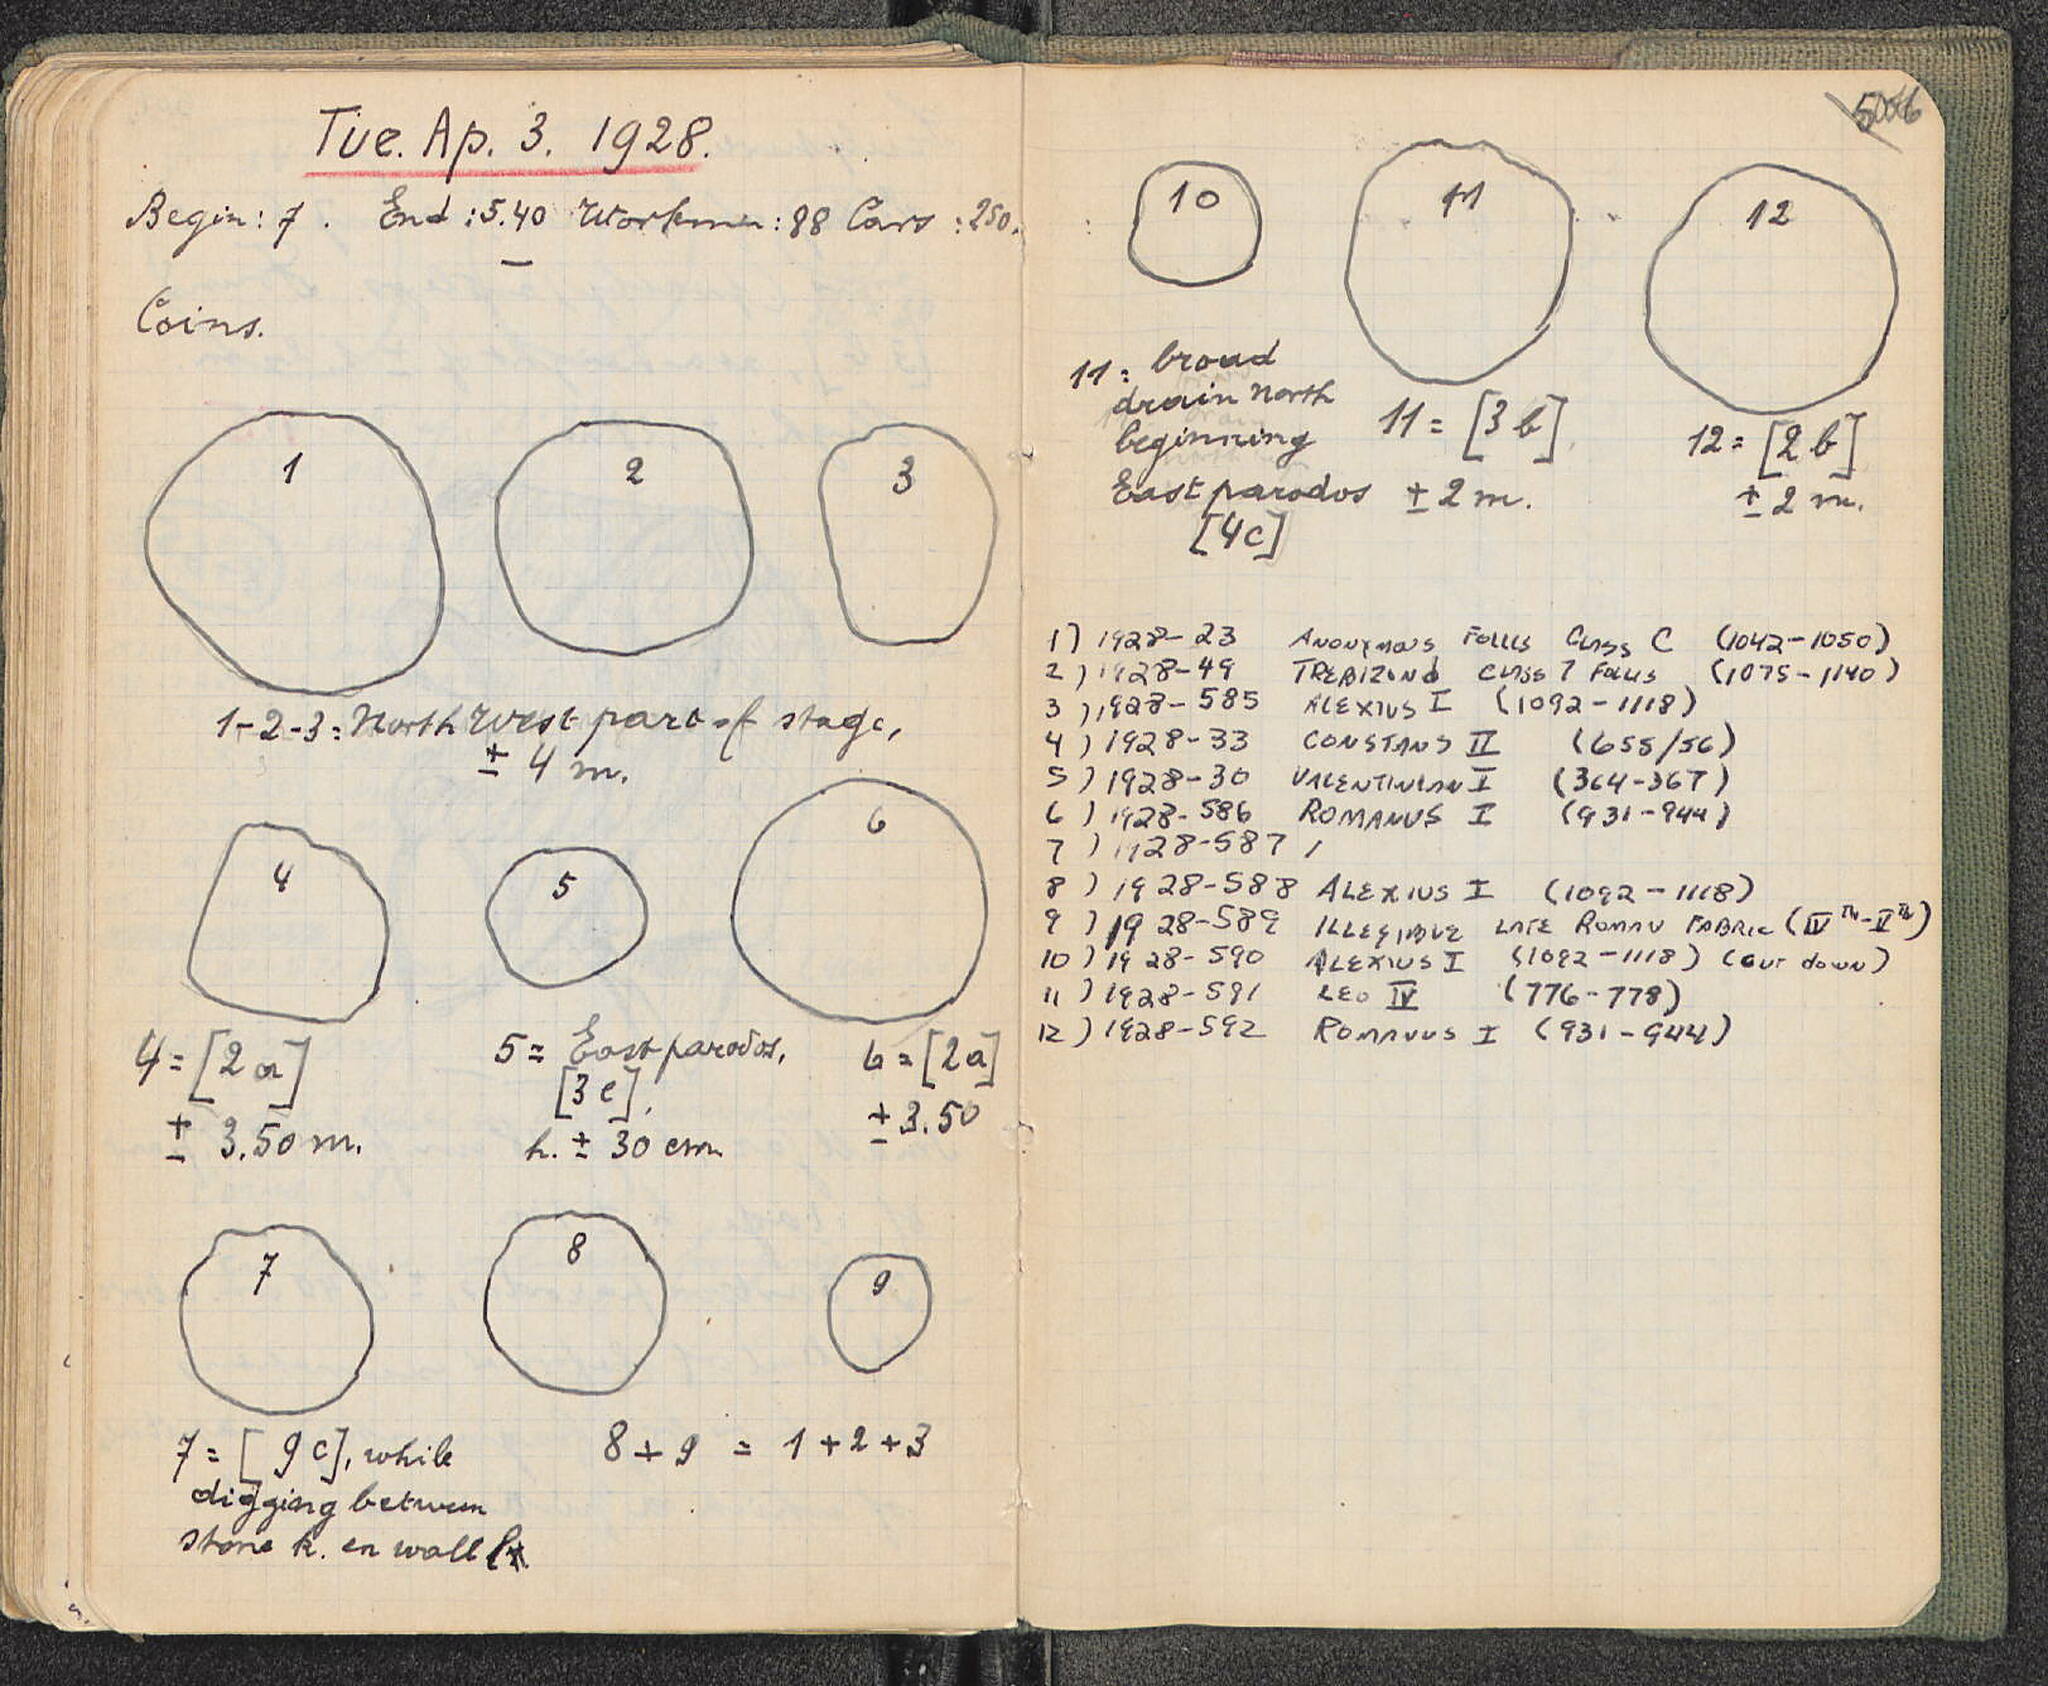 Tue. Ap. 3. 1928.
Begin: 7. End: 5.40 Workmen: 88 Cars: 250.
Coins.
1 2 3
1-2-3 = North West part of stage,
± 4 m.
4 5 6
4 = [2 a]
± 3.50 m.
5 = East parodos,
[3 e],
h. ± 30 cm.
6 = [2a]
± 3.50
7 8 9
7 = [9c], while
digging between
stone k. en wall
8 + 9 = 1 + 2 + 3
10 11 12
11 = broad
drain North
beginning
East parodos
[4c]
11 = [3 b]
± 2 m.
12 = [2 b]
± 2 m.
1) 1928-23 ANONYMOUS FOLLIS CLASS C (1042-1050)
2) 1928-49 TREBIZOND CLASS 7 FOLLIS (1075-1140)
3) 1928-585 ALEXIUS I (1092-1118)
4) 1928-33 CONSTANS II (655/56)
5) 1928-30 VALENTINIAN I (364-367)
6) 1928-586 ROMANUS I (931-944)
7) 1928-587
8) 1928-588 ALEXIUS I (1092-1118)
9) 1928-589 ILLEGIBLE LATE ROMAN FABRIC (IVTH-VTH)
10) 1928-590 ALEXIUS I (1092-1118) (CUT DOWN)
11) 1928-591 LEO IV (776-778)
12) 1928-592 ROMANUS I (931-944)